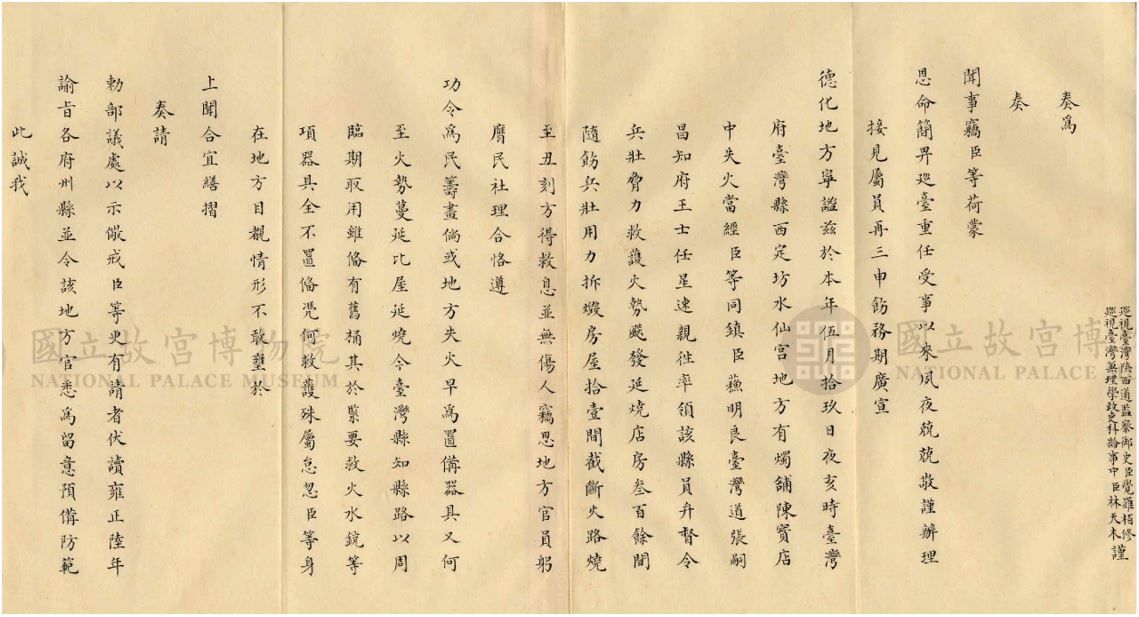 巡視臺灣陝西道監察御史臣覺羅栢修
巡視臺灣兼理學政吏科給事中臣林天木 謹
奏為
奏
聞事竊臣等荷蒙
恩命簡畀巡臺重任受事以來夙夜兢兢敬謹辦理
接見屬員再三申飭務期廣宣
德化地方寧謐茲於本年伍月拾玖日夜亥時臺灣
府臺灣縣西定坊水仙宮地方有燭舖陳寶店
中失火當經臣等同鎮臣蘓明良臺灣道張嗣
昌知府王士任星速親徃率領該縣員弁督令
兵壯脅力救護火勢颷發延燒店房叁百餘間
隨飭兵壯用力拆燬房屋拾壹間截斷火路燒
至丑刻方得救息並無傷人竊思地方官員躬
膺民社理合恪遵
功令為民籌畫倘或地方失火早為置備器具又何
至火勢蔓延比屋延燒今臺灣縣知縣路以周
臨期取用雖俻有舊桶其於緊要救火水銃等
項器具全不置俻凴何救護殊屬怠忽臣等身
在地方目覩情形不敢壅於
上聞合宜繕摺
奏請
勅部議處以示儆戒臣等更有請者伏讀雍正陸年
諭旨各府州縣並令該地方官悉為留意預備防範
此誠我
國立故宮博物院
NATIONAL PALACE MUSEUM
國立故宮博
NATIONAL PALACE